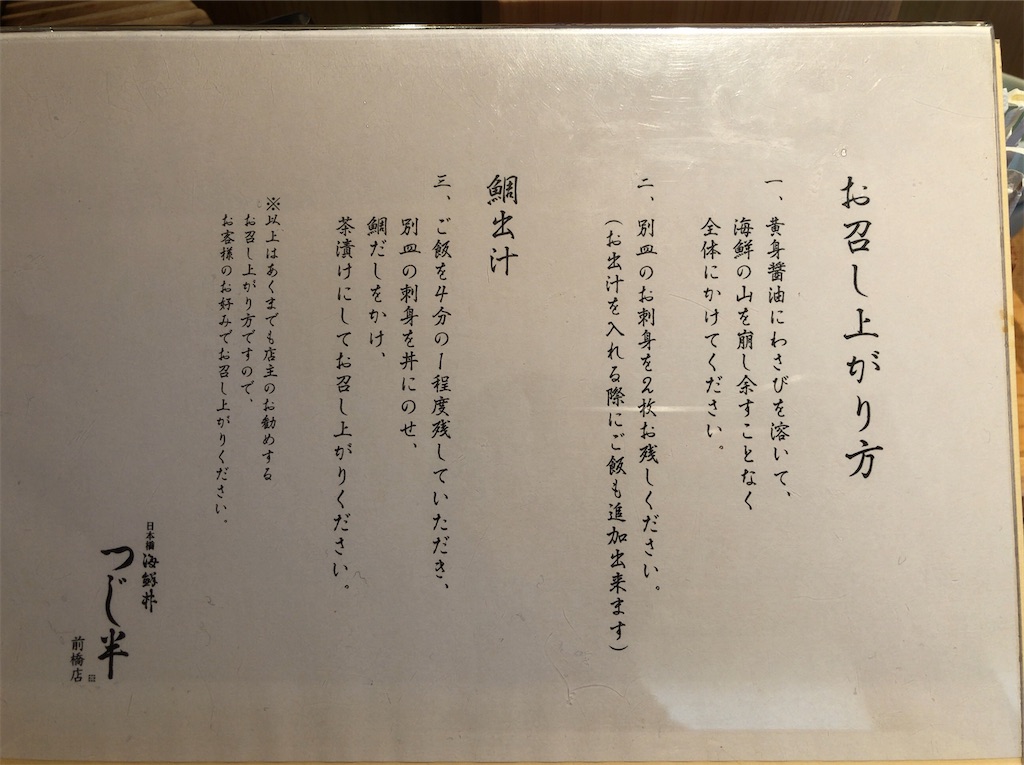 お召し上がり方
一、黄身醤油にわさびを溶いて、
海鮮の山を崩し余すことなく
全体にかけてください。
二、別皿のお刺身を2枚お残しください。
(お出汁を入れる際にご飯も追加出来ます)
鯛出汁
三、ご飯を4分の1程度残していただき、
別皿の刺身を丼にのせ、
鯛だしをかけ、
茶漬けにしてお召し上がりください。
※以上はあくまでも店主のお勧めする
お召し上がり方ですので、
お客様のお好みでお召し上がりください。
日本橋 海鮮丼
つじ半
前橋店